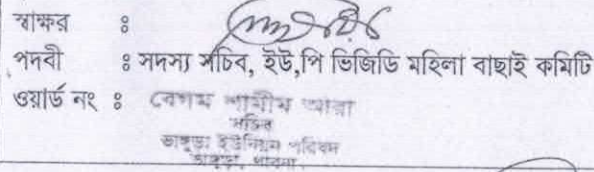 স্বাক্ষর ঃ
পদবী ঃ সদস্য সচিব, ইউ,পি ভিজিডি মহিলা বাছাই কমিটি
ওয়ার্ড নং ঃ বেগম শামীম আরা
সচিব
ভাঙ্গুড়া ইউনিয়ন পরিষদ
ভাঙ্গুড়া, পাবনা